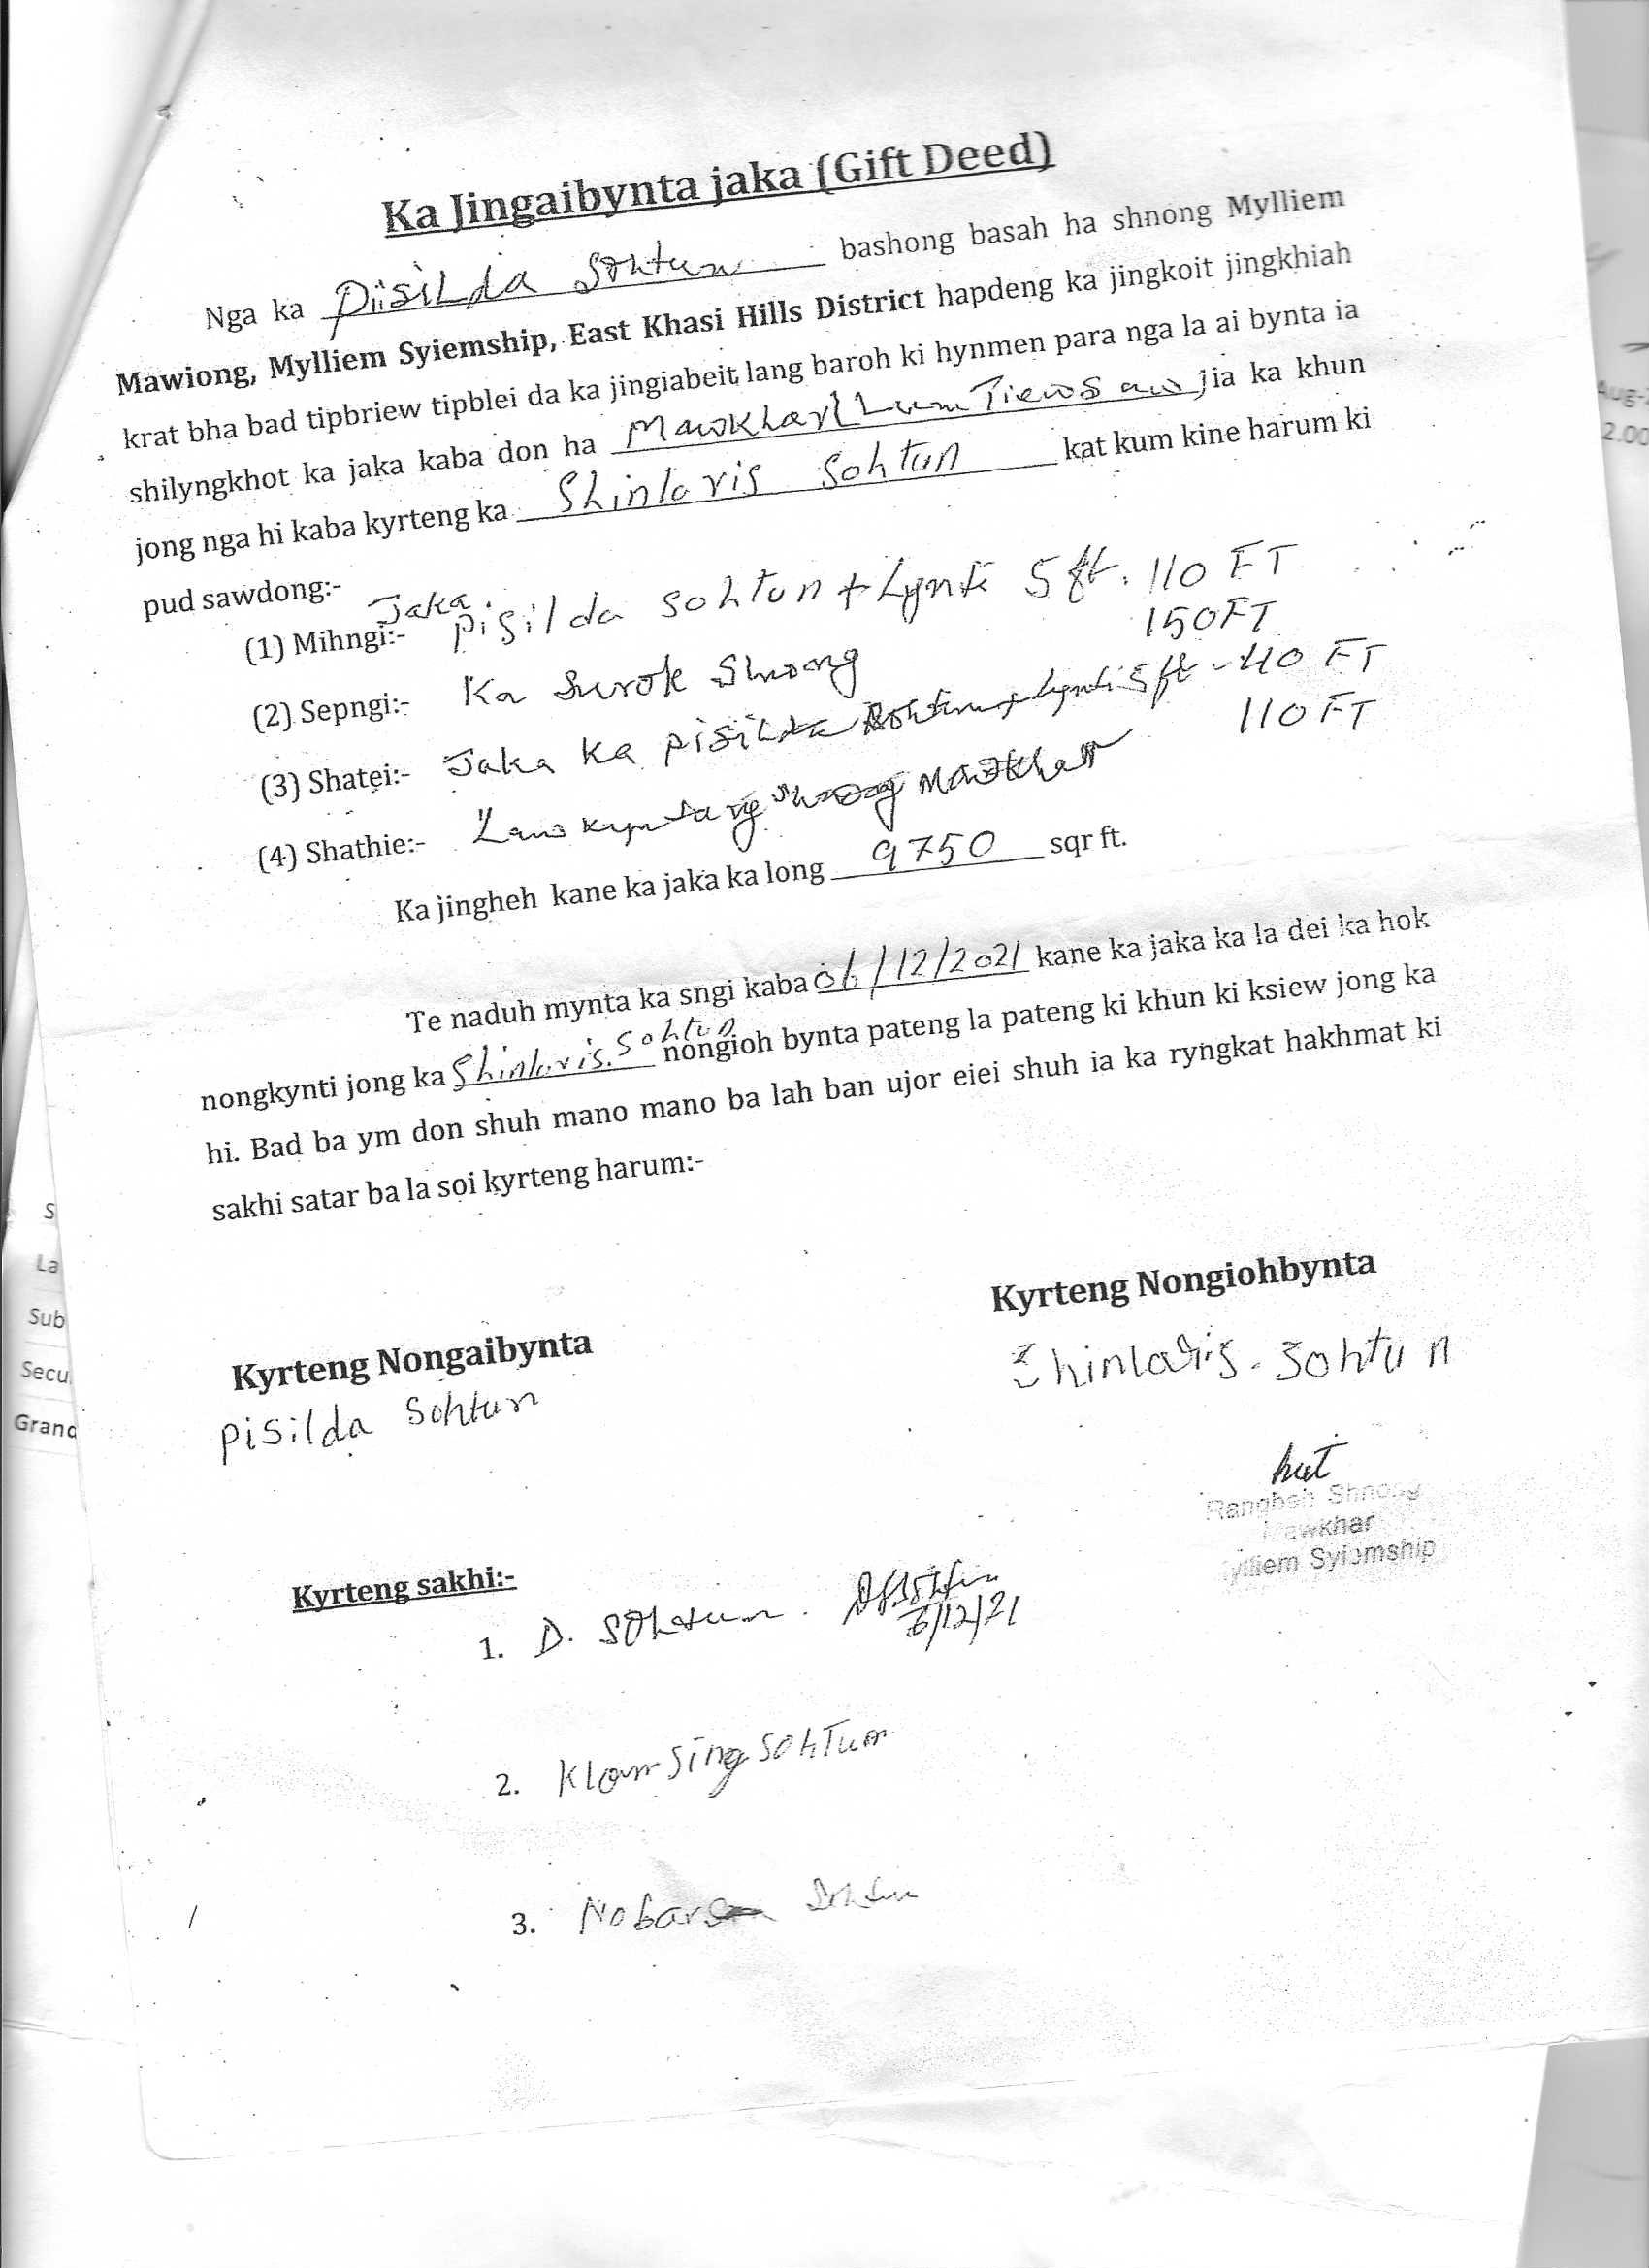 Ka Jingaibynta jaka (Gift Deed)
Nga ka Piisilda Sohtun bashong basah ha shnong Mylliem
Mawiong, Mylliem Syiemship, East Khasi Hills District hapdeng ka jingkoit jingkhiah
krat bha bad tipbriew tipblei da ka jingiabeit lang baroh ki hynmen para nga la ai bynta ia
shilyngkhot ka jaka kaba don ha Mawkhar (Lum Tiewsaw) ia ka khun
jong nga hi kaba kyrteng ka Shinlaris Sohtun kat kum kine harum ki
pud sawdong:-
(1) Mihngi:- Jaka Pisilda Sohtun + Lynti 5 ft. 110 FT
150 FT
(2) Sepngi:- Ka Surok Shnong
(3) Shatei:- Jaka Ka Pisilda Sohtun + lynti 5 ft - 40 FT
110 FT
(4) Shathie:- Shnong Mawkhar
Ka jingheh kane ka jaka ka long 9750 sqr ft.
Te naduh mynta ka sngi kaba 06/12/2021 kane ka jaka ka la dei ka hok
nongkynti jong ka Shinlaris. Sohtun nongioh bynta pateng la pateng ki khun ki ksiew jong ka
hi. Bad ba ym don shuh mano mano ba lah ban ujor eiei shuh ia ka ryngkat hakhmat ki
sakhi satar ba la soi kyrteng harum:-
Kyrteng Nongiohbynta
Kyrteng Nongaibynta
Shinlaris. Sohtun
Pisilda Sohtun
Rangbah Shnong
Mawkhar
Mylliem Syiemship
Kyrteng sakhi:-
1. D. Sohtun.
6/12/21
2. Klansing Sohtun
3. Sohtun
S
La
Sub
Secu
Grand
Aug-
2.00